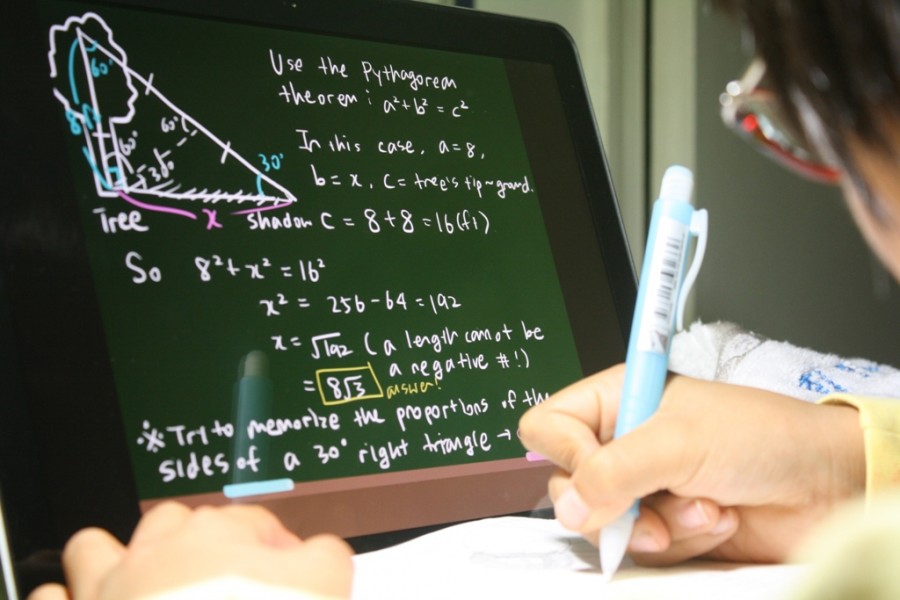 60°
8
60°
60°
30°
30°
Tree
x
shadow
Use the Pythagorean
theorem : a²+b² = c²
In this case, a=8,
b=x, c= tree's tip~ground.
C = 8+8 = 16(ft)
So 8²+x² = 16²
x² = 256-64 = 192
x = √192 ( a length cannot be
a negative #!)
= 8√3 answer!
※ Try to memorize the proportions of the
sides of a 30° right triangle →